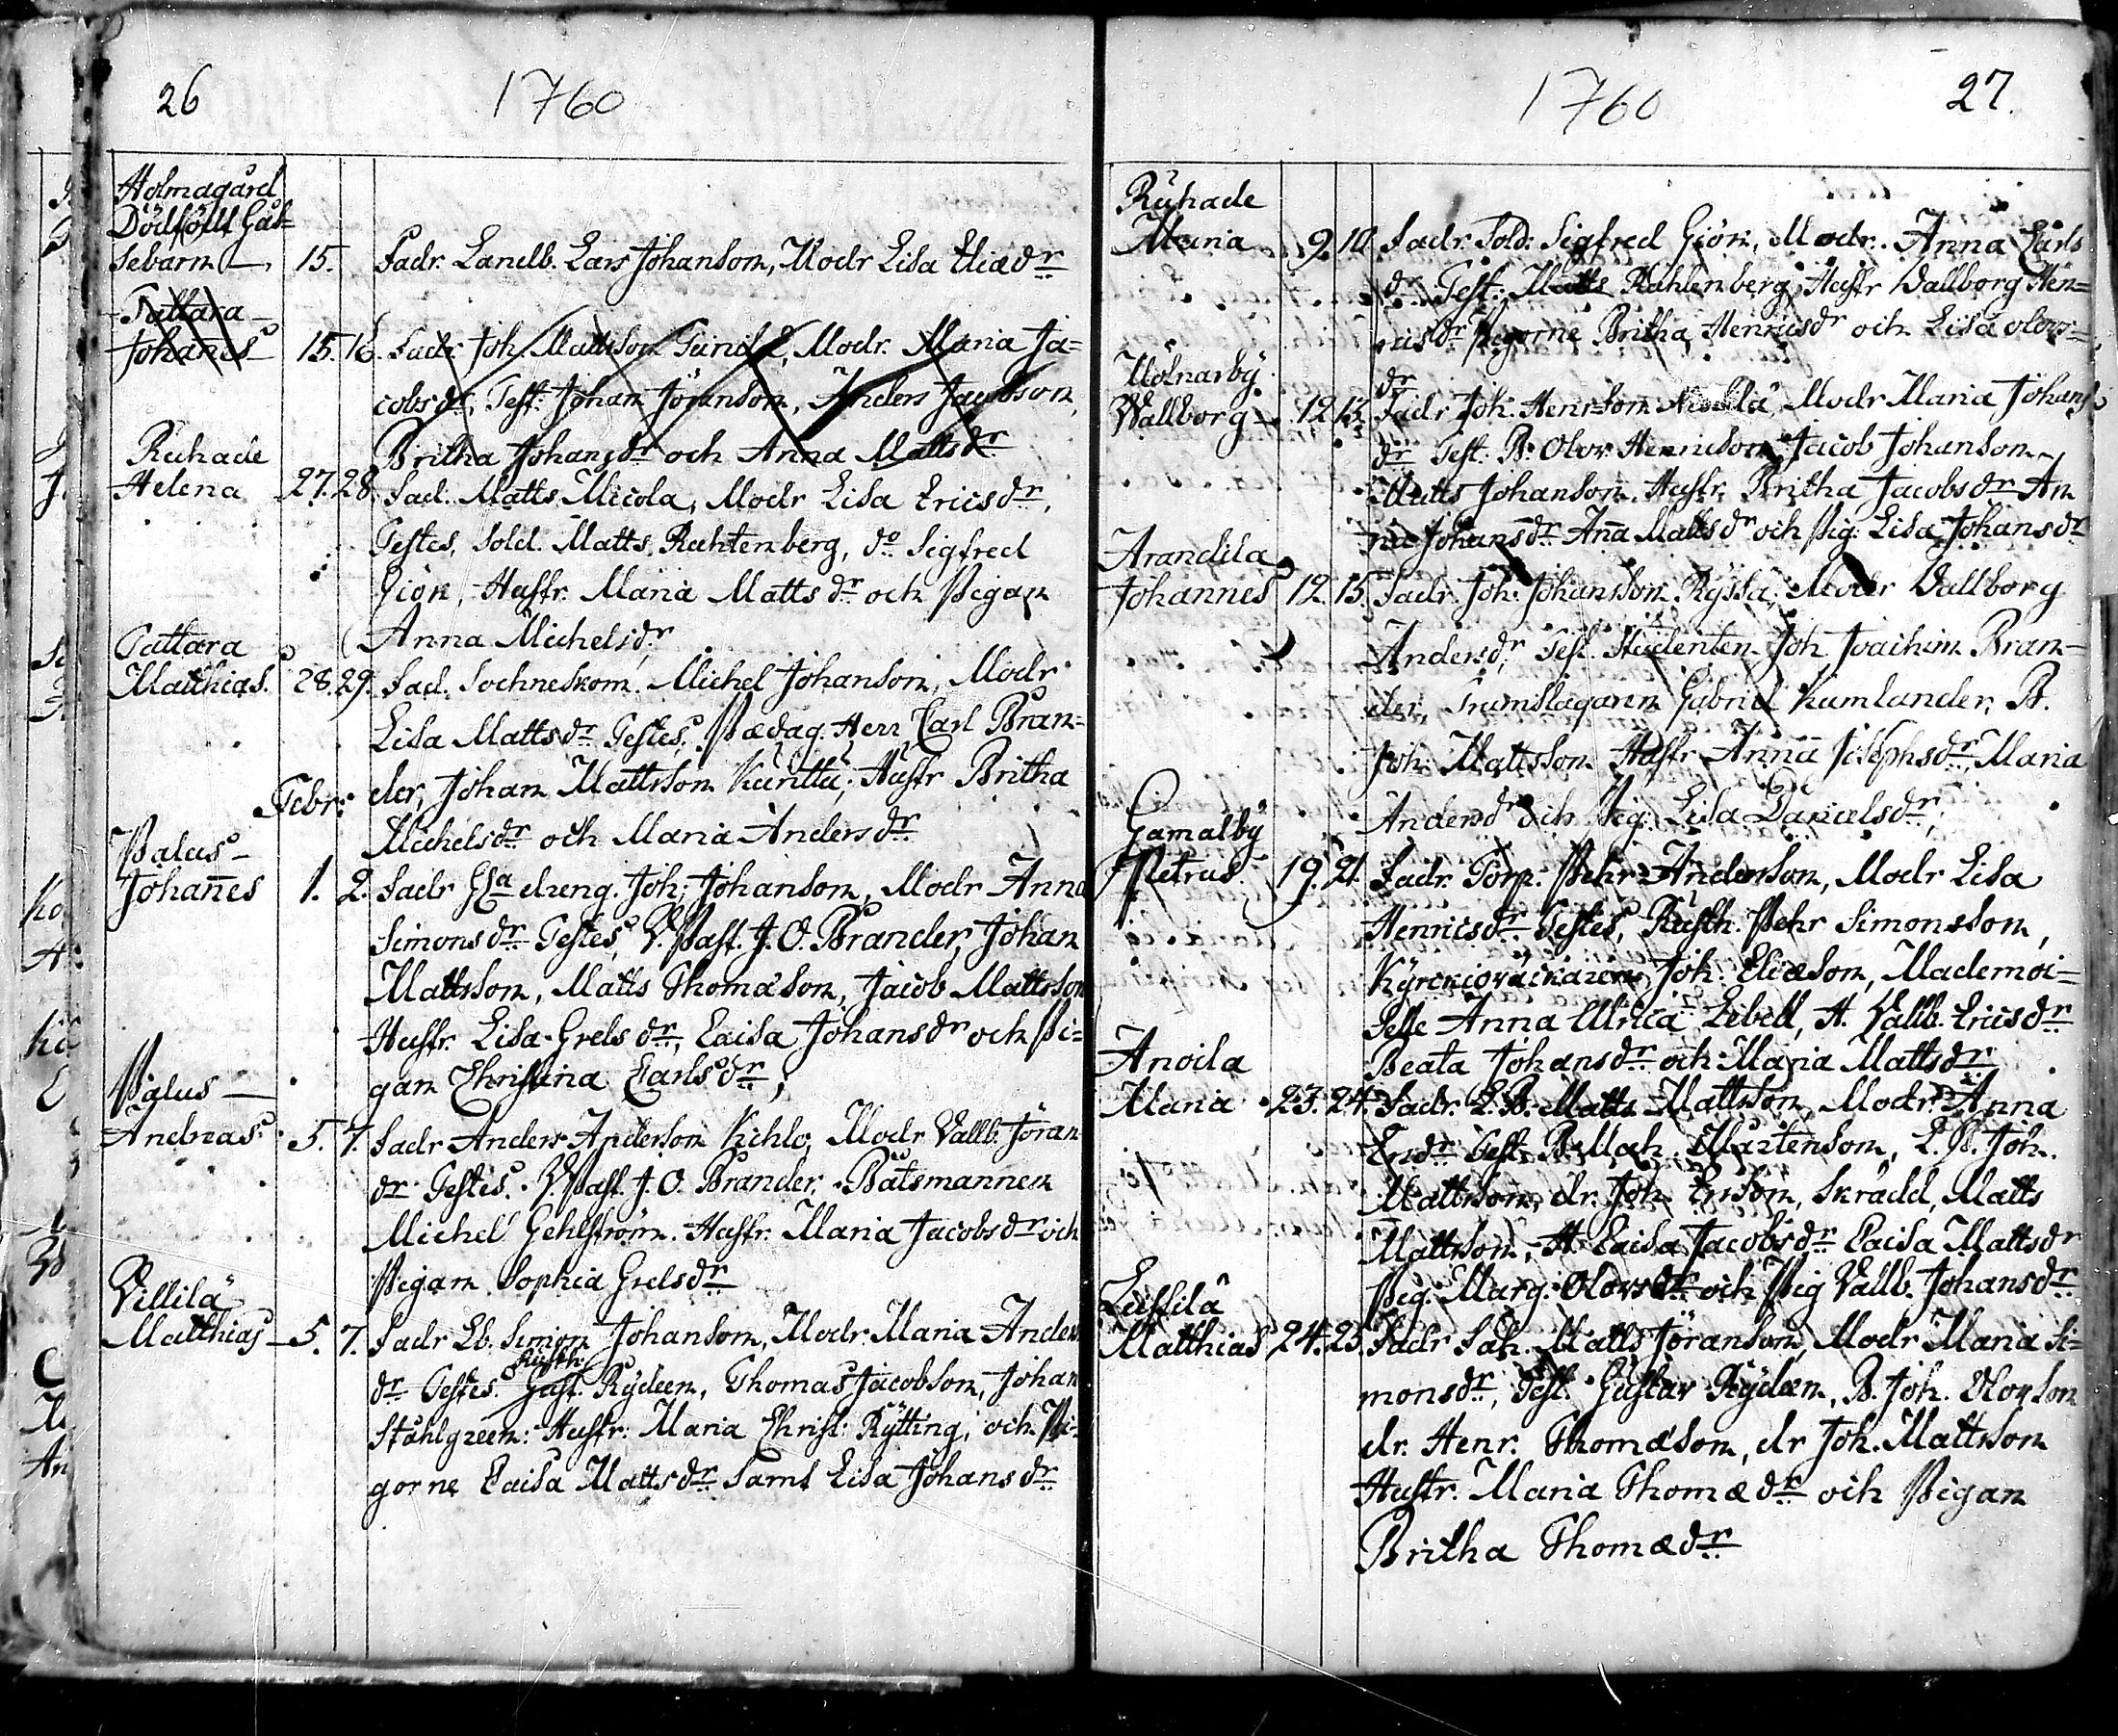 26
1760
Holmagård
Dödfödt Gås=
sebarn — 15. Fadr. Landb. Lars Johanson, Modr Lisa Eliædr
Tattara
Johanes 15. 16. Fadr. Joh. Mattsson Modr. Maria Ja=
cobsdr, Test. Johan Jöranson, Anders Jacobson,
Britha Johansdr och Anna Mattsdr
Ruhade
Helena 27. 28. Fad. Matts Micola, Modr Lisa Ericsdr,
Testes, Sold. Matts Ruhtenberg, do Sigfred
Giök, Hustr. Maria Mattsdr och Pigan
Anna Michelsdr
Tattara
Matthias. 28. 29. Fad. Sochneskom. Michel Johanson, Modr
Lisa Mattsdr Testes, Pædag. Herr Carl Bran=
der, Johan Mattsson Kurittu, Hustr Britha
Febr:
Michelsdr och Maria Andersdr
Palus —
Johañes 1. 2. Fadr dreng. Joh: Johanson, Modr Anna
Simonsdr Testes, V. Past. J. O. Brander, Johan
Mattsson, Matts Thomæson, Jacob Mattsson
Hustr. Lisa Grelsdr, Caisa Johansdr och Pi=
gan Christina Carlsdr,
Palus —
Andreas. 5. 7. Fadr Anders Anderson Kihlo, Modr Vallb. Jöran
dr Testes. V. Past. J. O. Brander, Båtsmannen
Michel Gehlström. Hustr. Maria Jacobsdr och
Pigan Sophia Grelsdr
Villilä
Matthias — 5. 7. Fadr Lb. Simon Johanson, Modr. Maria Anders
Rusth.
dr Testes. Gust. Rydeen, Thomas Jacobson, Johan
Ståhlgreen: Hustr: Maria Christ: Rytting, och Pi=
gorne Caisa Mattsdr samt Lisa Johansdr
1760
27.
Ruhade
Maria 9. 10. Fadr. Sold: Sigfred Giök, Modr. Anna Carls
dr Test: Matts Ruhtenberg, Hustr Vallborg Hen=
ricsdr Pigorne Britha Henricsdr och Lisa Olovs=
dr
Molnarby
Wallborg — 12. 13. Fadr Joh. Henrson Modr Maria Johans
dr Test. B. Olov Henricson, Jacob Johanson
Matts Johanson. Hustr. Britha Jacobsdr An
na Johansdr Aña Mattsdr och Pig. Lisa Johansdr
Arandila
Johannes 12. 15. Fadr. Joh: Johansson Ryssä, Modr Vallborg
Andersdr, Test. Studenten Joh Joachim Bran=
der, Trumslagaren Gabriel Kumlander, B.
Joh. Mattsson Hustr Anna Josephsdr, Maria
Andersdr och Pig. Lisa Danielsdr,
Gamalby
Petrus. 19. 21. Fadr. Torp. Pehr Anderson, Modr Lisa
Henricsdr Testes, Rusth. Pehr Simonsson,
Kyrckioväckaren Joh. Eliæson, Mademoi=
selle Anna Ulrica Libell, H. Vallb. Ericsdr
Beata Johansdr och Maria Mattsdr
Anoila
Maria 23. 24. Fadr. L. B. Matts Mattsson, Modr. Anna
Ersdr Test. B. Mårtenson, L. B. Joh.
Mattsson, dr. Joh Erson, Skrädd. Matts
Mattsson, H. Caisa Jacobsdr Caisa Mattsdr
Pig. Marg. Olovsdr och Pig Vallb. Johansdr
Lussila
Matthias 24. 25. Fadr Sah. Matts Jöranson, Modr Maria Si=
monsdr, Test. Gustav Rydeen, B. Joh. Olovson
dr. Henr. Thomæson, dr Joh. Mattsson
Hustr. Maria Thomædr och Pigan
Britha Thomædr